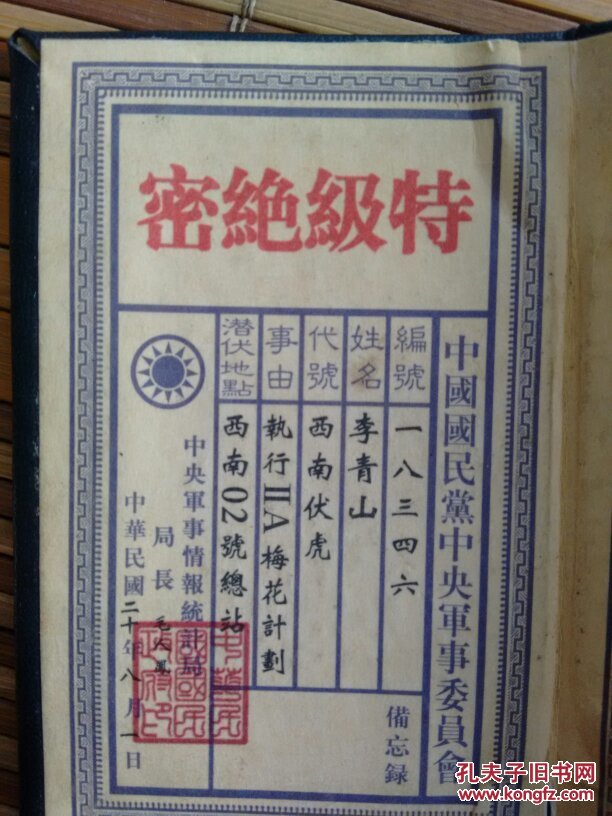 特級絶密
中國國民黨中央軍事委員會
編號 一八三四六
姓名 李青山
代號 西南伏虎
事由 執行IIA梅花計劃
潜伏地點 西南02號總站
備忘録
中央軍事情報統計局
局長 毛人鳳
中華民國二十年八月一日
中華民國國民政府印
孔夫子旧书网
www.kongfz.com